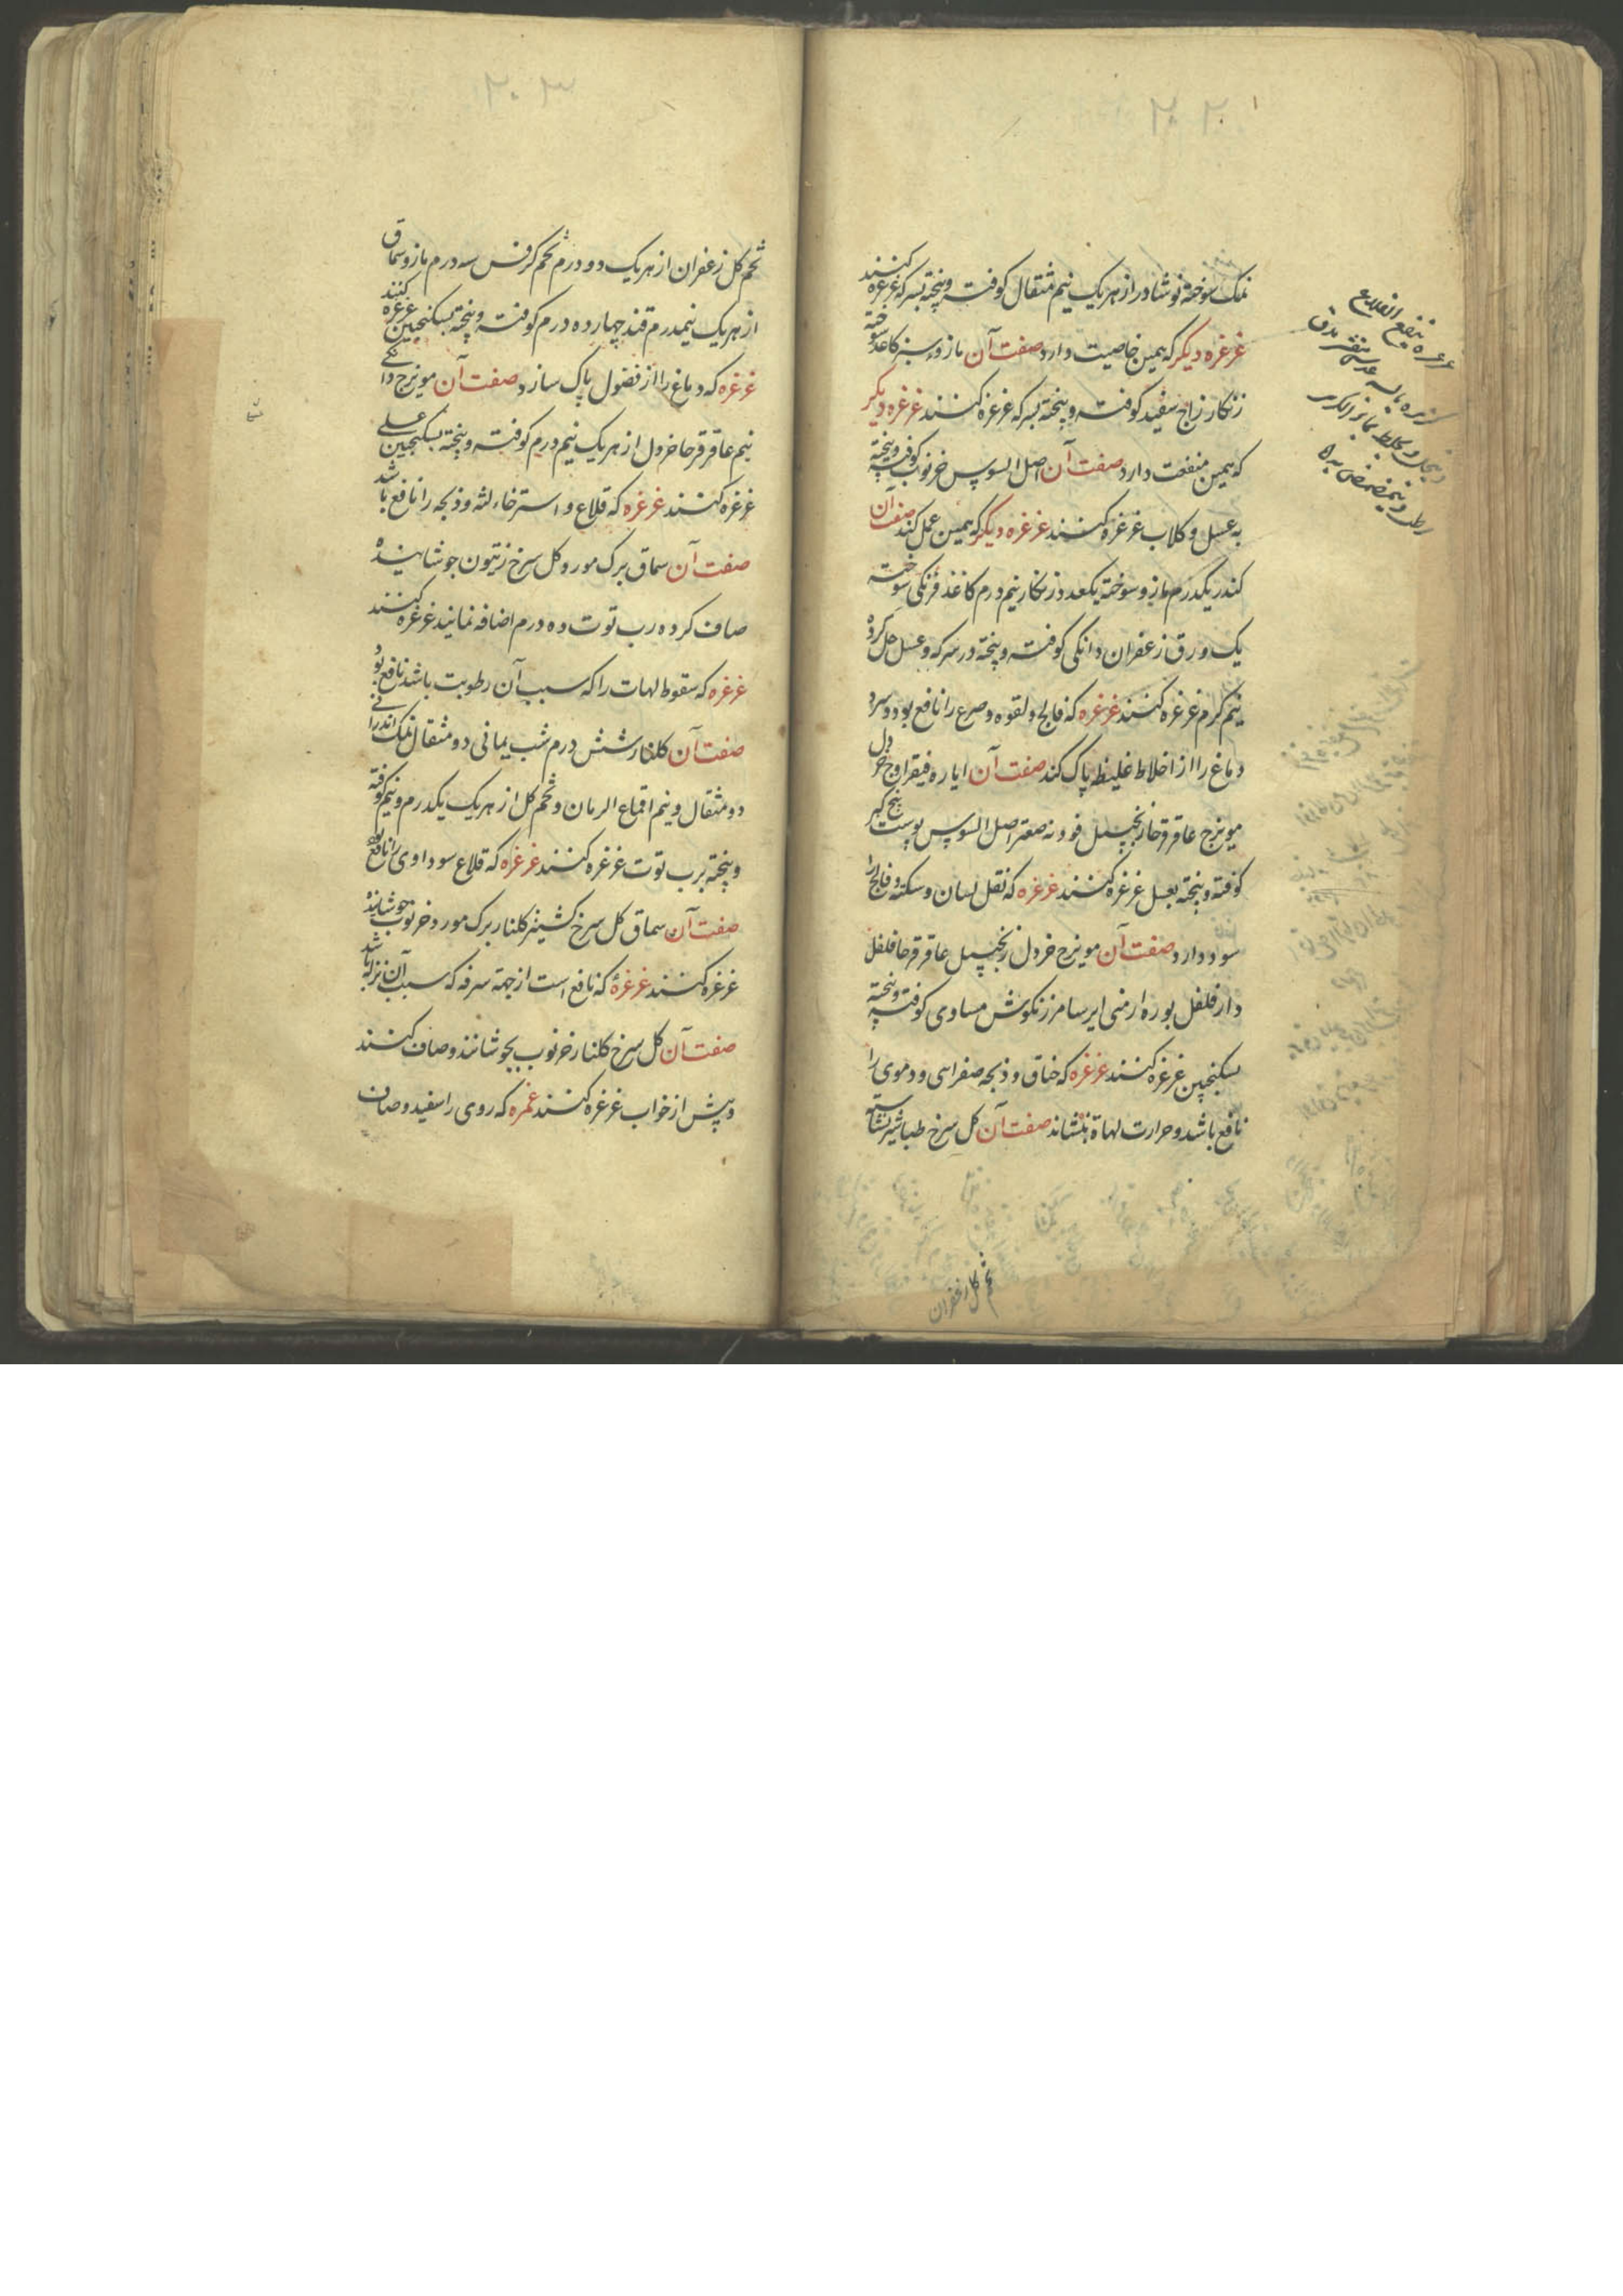 ۲۰۲
نمک سوخته نوشادر از هر یک نیم مثقال کوفته و پخته بسرکه غرغره کنند
غرغره دیکر که همین خاصیت دارد صفت آن مازوء سبز کاغذ سوخته
زنکار زاج سفید کوفته و پخته بسرکه غرغره کنند غرغره دیکر
که همین منفعت دارد صفت آن اصل السوس خرنوب کوفته و پخته
به عسل و کلاب غرغره کنند غرغره دیکر که همین عمل کند صفت آن
کندر یکدرم مازو سوخته یکعدد زنکار نیم درم کاغذ فرنکی سوخته
یک ورق زعفران دانکی کوفته و پخته در سرکه و عسل حل کرده
نیم کرم غرغره کنند غرغره که فالج و لقوه و صرع را نافع بود و سرد
دماغ را از اخلاط غلیظ پاک کند صفت آن ایاره فیقرا و خردل
مویزج عاقرقرحا زنجبیل فودنه صعتر اصل السوس پوست بیخ کبر
کوفته و پخته بعسل غرغره کنند غرغره که ثقل لسان و سکته و فالج را
سود دارد صفت آن مویزج خردل زنجبیل عاقرقرحا فلفل
دارفلفل بوره ارمنی ایرسا مرزنکوش مساوی کوفته و پخته
بسکنجبین غرغره کنند غرغره که خناق و ذبحه صفرایی و دموی را
نافع باشد و حرارت لهاة بنشاند صفت آن کل سرخ طباشیر نشاسته
تخم کل زعفران
غرغره ینفع القلاع
۲۰۳
تخم کل زعفران از هر یک دو درم تخم کرفس سه درم مازو سماق
از هر یک نیمدرم قند چهارده درم کوفته و پخته بسکنجبین غرغره کنند
غرغره که دماغ را از فضول پاک سازد صفت آن مویزج دانکی
نیم عاقرقرحا خردل از هر یک نیم درم کوفته و پخته بسکنجبین عسلی
غرغره کنند غرغره که قلاع و استرخاء لثه و ذبحه را نافع باشد
صفت آن سماق برک مورد کل سرخ زیتون جوشانیده
صاف کرده رب توت ده درم اضافه نمایند غرغره کنند
غرغره که سقوط لهات را که سبب آن رطوبت باشد نافع بود
صفت آن کلنار شش درم شب یمانی دو مثقال نمک اندرانی
دو مثقال و نیم اقماع الرمان و تخم کل از هر یک یکدرم و نیم کوفته
و پخته برب توت غرغره کنند غرغره که قلاع سوداوی را نافع بود
صفت آن سماق کل سرخ کشنیز کلنار برک مورد خرنوب جوشانیده
غرغره کنند غرغرهٔ که نافع است از جهة سرفه که سبب آن نزله باشد
صفت آن کل سرخ کلنار خرنوب بجوشانند و صاف کنند
و پیش از خواب غرغره کنند غمره که روی را سفید و صاف